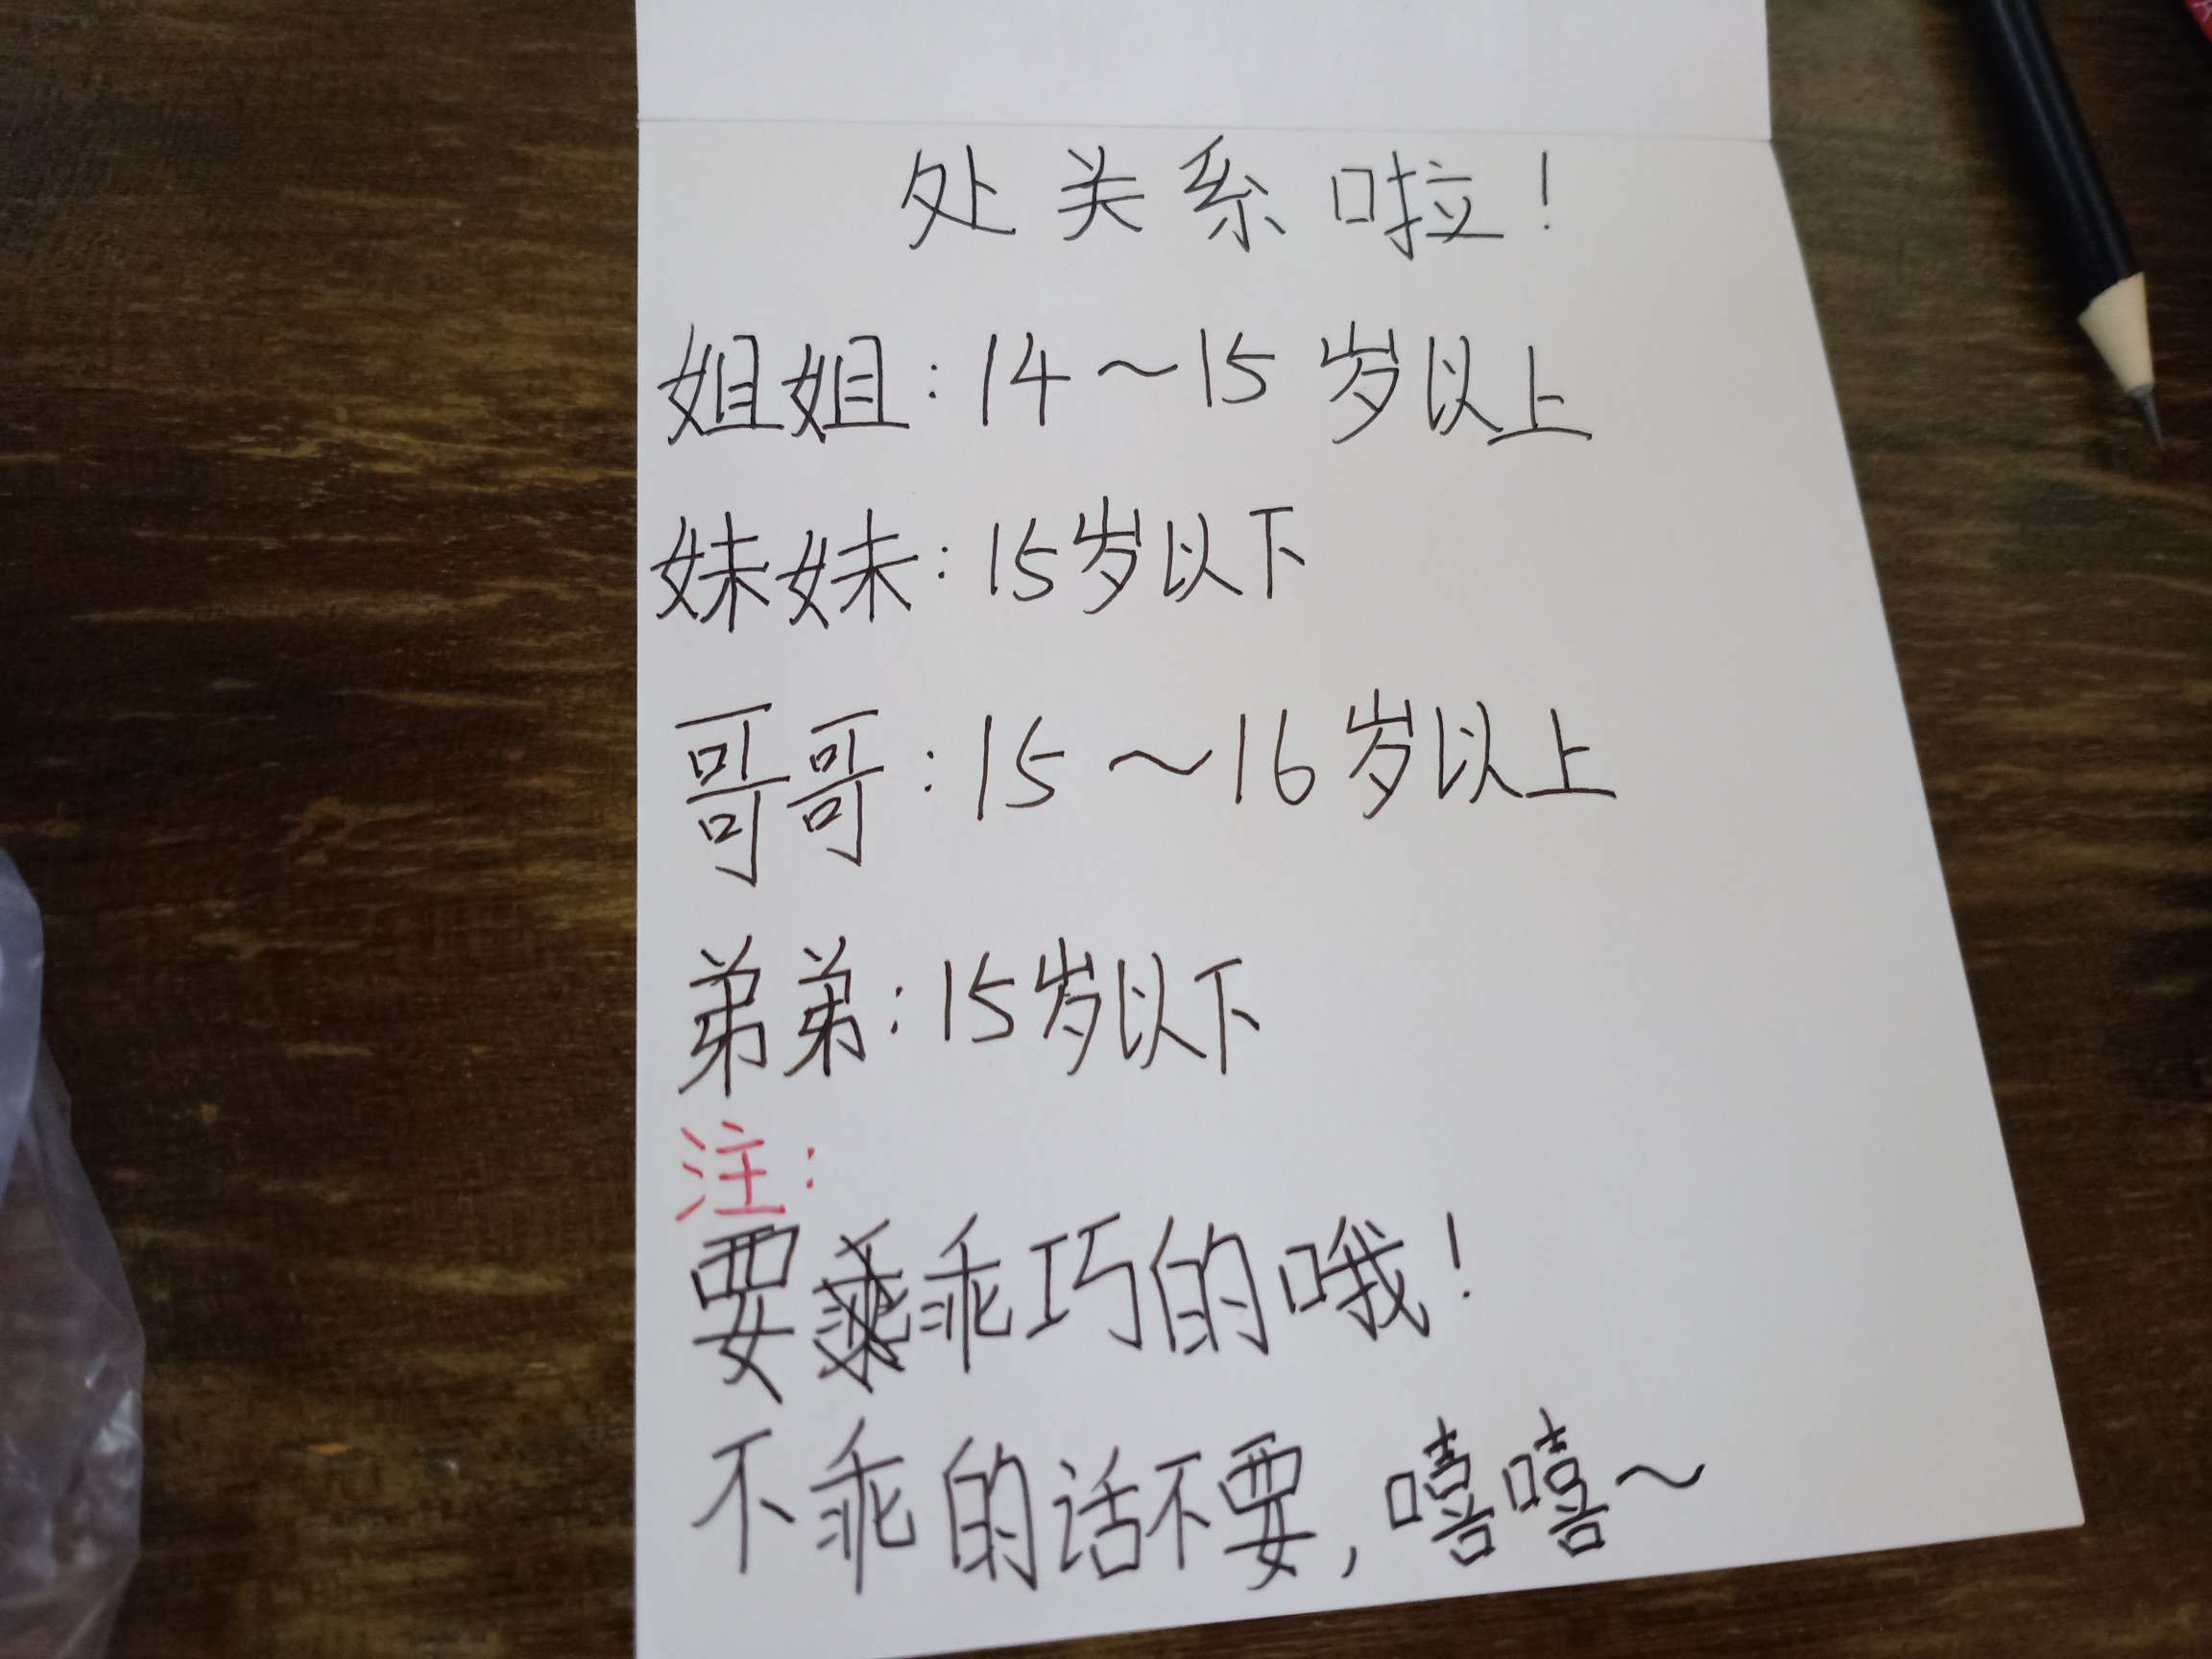 处关系啦！
姐姐：14～15岁以上
妹妹：15岁以下
哥哥：15～16岁以上
弟弟：15岁以下
注：
要乖巧的哦！
不乖的话不要，嘻嘻～